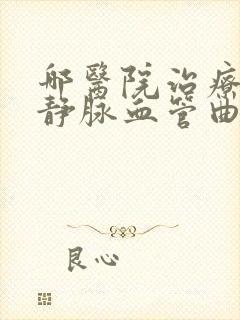 那醫院治療
静脉血管曲
良心